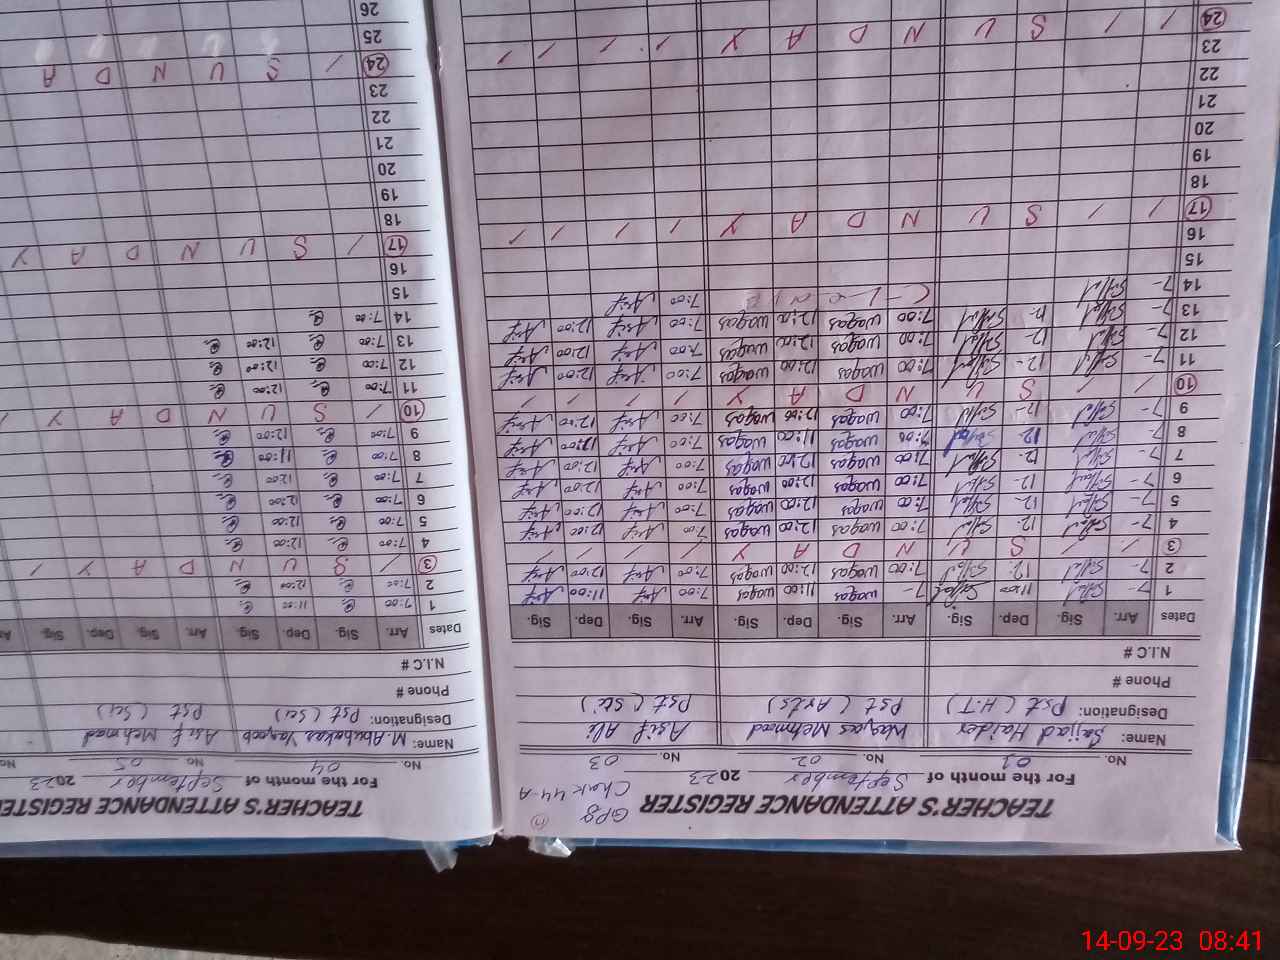 TEACHER'S ATTENDANCE REGISTER GPS
For the month of September 2023 Chak 44-A
No. 01 No. 02 No. 03
Name: Sajjad Haider Waqas Mehmod Asif Ali
Designation: Pst (H.T) Pst (Arts) Pst (Sci)
Phone #
N.I.C #
Dates Arr. Sig. Dep. Sig. Arr. Sig. Dep. Sig. Arr. Sig. Dep. Sig.
1 7- 11:00 7- waqas 11:00 waqas 7:00 Asif 11:00 Asif
2 7- 12 7:00 waqas 12:00 waqas 7:00 Asif 12:00 Asif
3 / / S U N D A Y / / / /
4 7- 12- 7:00 waqas 12:00 waqas 7:00 Asif 12:00 Asif
5 7- 12- 7:00 waqas 12:00 waqas 7:00 Asif 12:00 Asif
6 7- 12- 7:00 waqas 12:00 waqas 7:00 Asif 12:00 Asif
7 7- 12- 7:00 waqas 12:00 waqas 7:00 Asif 12:00 Asif
8 7- 12- 7:00 waqas 11:00 waqas 7:00 Asif Asif
9 7- 12- 7:00 waqas 12:00 waqas 7:00 Asif 12:00 Asif
10 / / S U N D A Y / / / /
11 7- 12- 7:00 waqas 12:00 waqas 7:00 Asif 12:00 Asif
12 7- 12- 7:00 waqas 12:00 waqas 7:00 Asif 12:00 Asif
13 7- 12- 7:00 waqas 12:00 waqas 7:00 Asif 12:00 Asif
14 7- C-Leave 7:00 Asif
15
16
17 / / S U N D A Y / / / /
18
19
20
21
22
23
24 / / S U N D A Y / / / /
TEACHER'S ATTENDANCE REGISTER
For the month of September 2023
No. 04 No. 05 No
Name: M. Abubakar Yaqoob Asif Mehmod
Designation: Pst (Sci) Pst (Sci)
Phone #
N.I.C #
Dates Arr. Sig. Dep. Sig. Arr. Sig. Dep. Sig. Ar
1 7:00 11:00
2 7:00 12:00
3 / S U N D A Y /
4 7:00 12:00
5 7:00 12:00
6 7:00 12:00
7 7:00 12:00
8 7:00 11:00
9 7:00 12:00
10 / S U N D A Y /
11 7:00 12:00
12 7:00 12:00
13 7:00 12:00
14 7:00
15
16
17 / S U N D A Y
18
19
20
21
22
23
24 / S U N D A
25
26
14-09-23 08:41